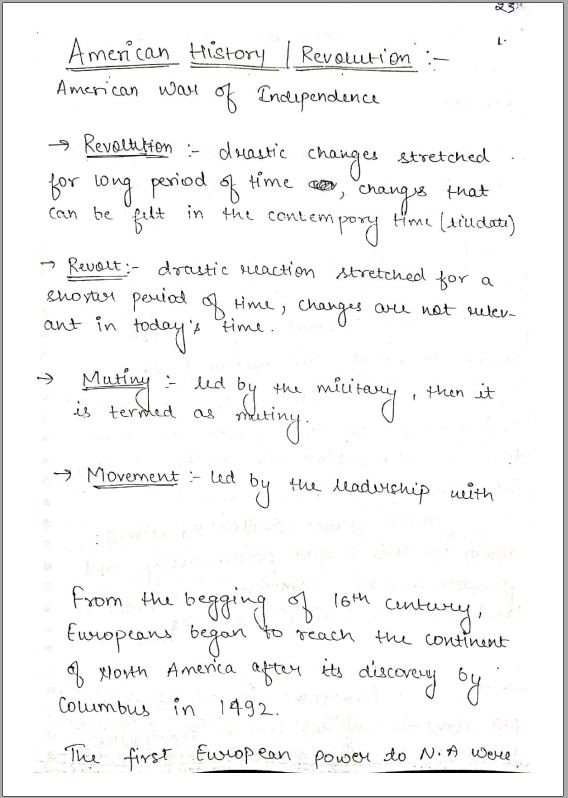 23
1.
American History | Revolution :-
American War of Independence
→ Revolution :- drastic changes stretched
for long period of time , changes that
can be felt in the contempory time (till date)
→ Revolt :- drastic reaction stretched for a
shorter period of time, changes are not relev-
ant in today's time.
→ Mutiny :- led by the military, then it
is termed as mutiny.
→ Movement :- led by the leadership with
From the begging of 16th century,
Europeans began to reach the continent
of North America after its discovery by
Columbus in 1492.
The first European power to N.A were